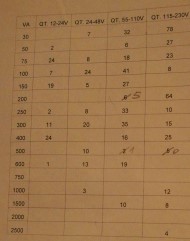 VA QT 12-24V QT 24-48V QT 55-110V QT 115-230V
30 7 32 78
50 2 6 27
75 24 8 18 23
100 7 24 41 8
150 19 5 27
200 5 64
250 2 8 33 10
300 11 20 35 15
400 24 16 25
500 10
600 1 13 19
800
1000 3 12
1500 10 8
2000
2500 4